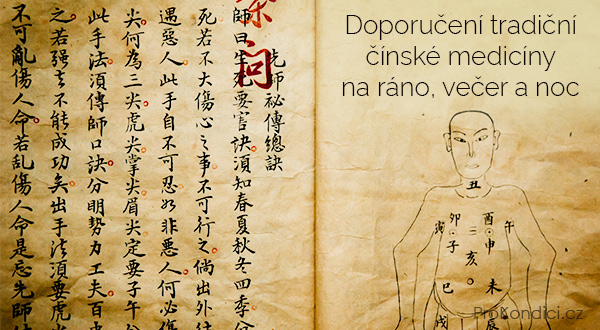 Doporučení tradiční
čínské medicíny
na ráno, večer a noc
问
先師祕傳總訣
師曰生死要害訣須知春夏秋冬四季
死若不大傷心之事不可行之倘出外
遇惡人此手自不可忍如非惡人何必傷
尖何為三尖虎尖掌尖眉尖定要子午
此手法須傳師口訣分明勢力工夫百
之若强之不能成功矣出手法須要虎
不可亂傷人命若乱傷人命是忘先師
丑
卯 酉 午
寅 子 申
亥
巳 未
戌 辰
ProKondici.cz